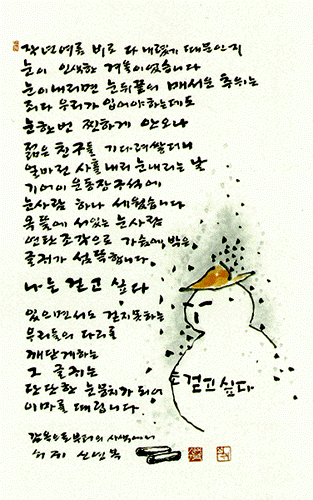 작년여름 비로 다 내렸기 때문인지
눈이 인색한 겨울이었습니다
눈이 내리면 눈뒤끝의 매서운 추위는
죄다 우리가 입어야 하는데도
눈 한번 찐하게 안 오나
젊은 친구들 기다려쌓더니
얼마전 사흘내리 눈내리는 날
기어이 운동장 구석에
눈사람 하나 세웠습니다
옥뜰에 서있는 눈사람
연탄조각으로 가슴에 박은
글귀가 섬뜩합니다
나는 걷고 싶다
있으면서도 걷지 못하는
우리들의 다리를
깨닫게 하는
그 글귀는
단단한 눈뭉치가 되어
이마를 때립니다
는 걷고 싶다
감옥으로부터의 사색에서
신영복